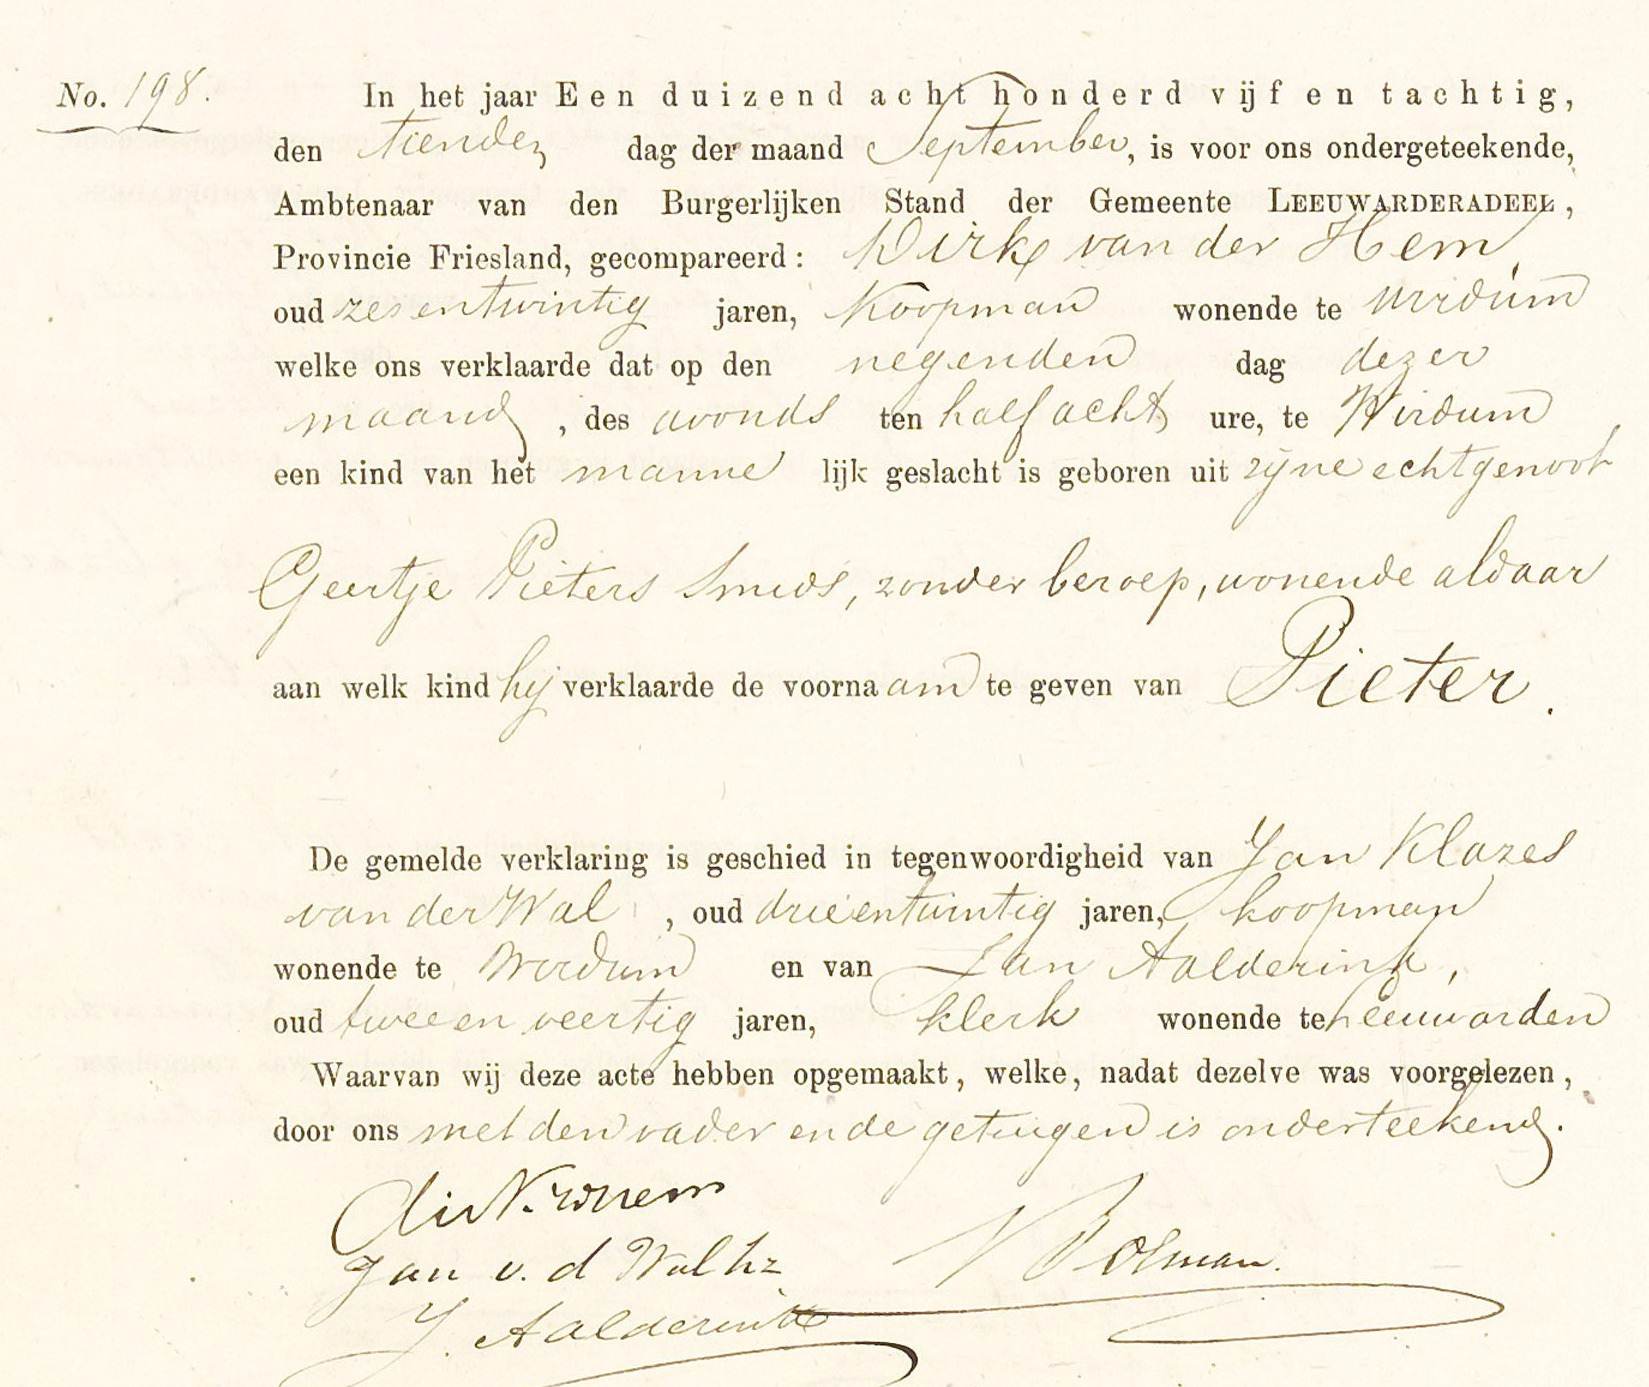 No. 198.
In het jaar Een duizend acht honderd vijf en tachtig,
den tienden dag der maand September, is voor ons ondergeteekende,
Ambtenaar van den Burgerlijken Stand der Gemeente LEEUWARDERADEEL,
Provincie Friesland, gecompareerd: Dirk van der Hem,
oud zesentwintig jaren, Koopman wonende te Wirdum
welke ons verklaarde dat op den negenden dag dezer
maand, des avonds ten half acht ure, te Wirdum
een kind van het manne lijk geslacht is geboren uit zijne echtgenoot
Geertje Pieters Smids, zonder beroep, wonende aldaar
aan welk kind hij verklaarde de voornaam te geven van Pieter.
De gemelde verklaring is geschied in tegenwoordigheid van Jan Klazes
van der Wal, oud drieentwintig jaren, koopman
wonende te Wirdum en van Jan Aalderink,
oud tweeenveertig jaren, klerk wonende te Leeuwarden
Waarvan wij deze acte hebben opgemaakt, welke, nadat dezelve was voorgelezen,
door ons met den vader en de getuigen is onderteekend.
Jan v. d Wal Kz
J. Aalderink